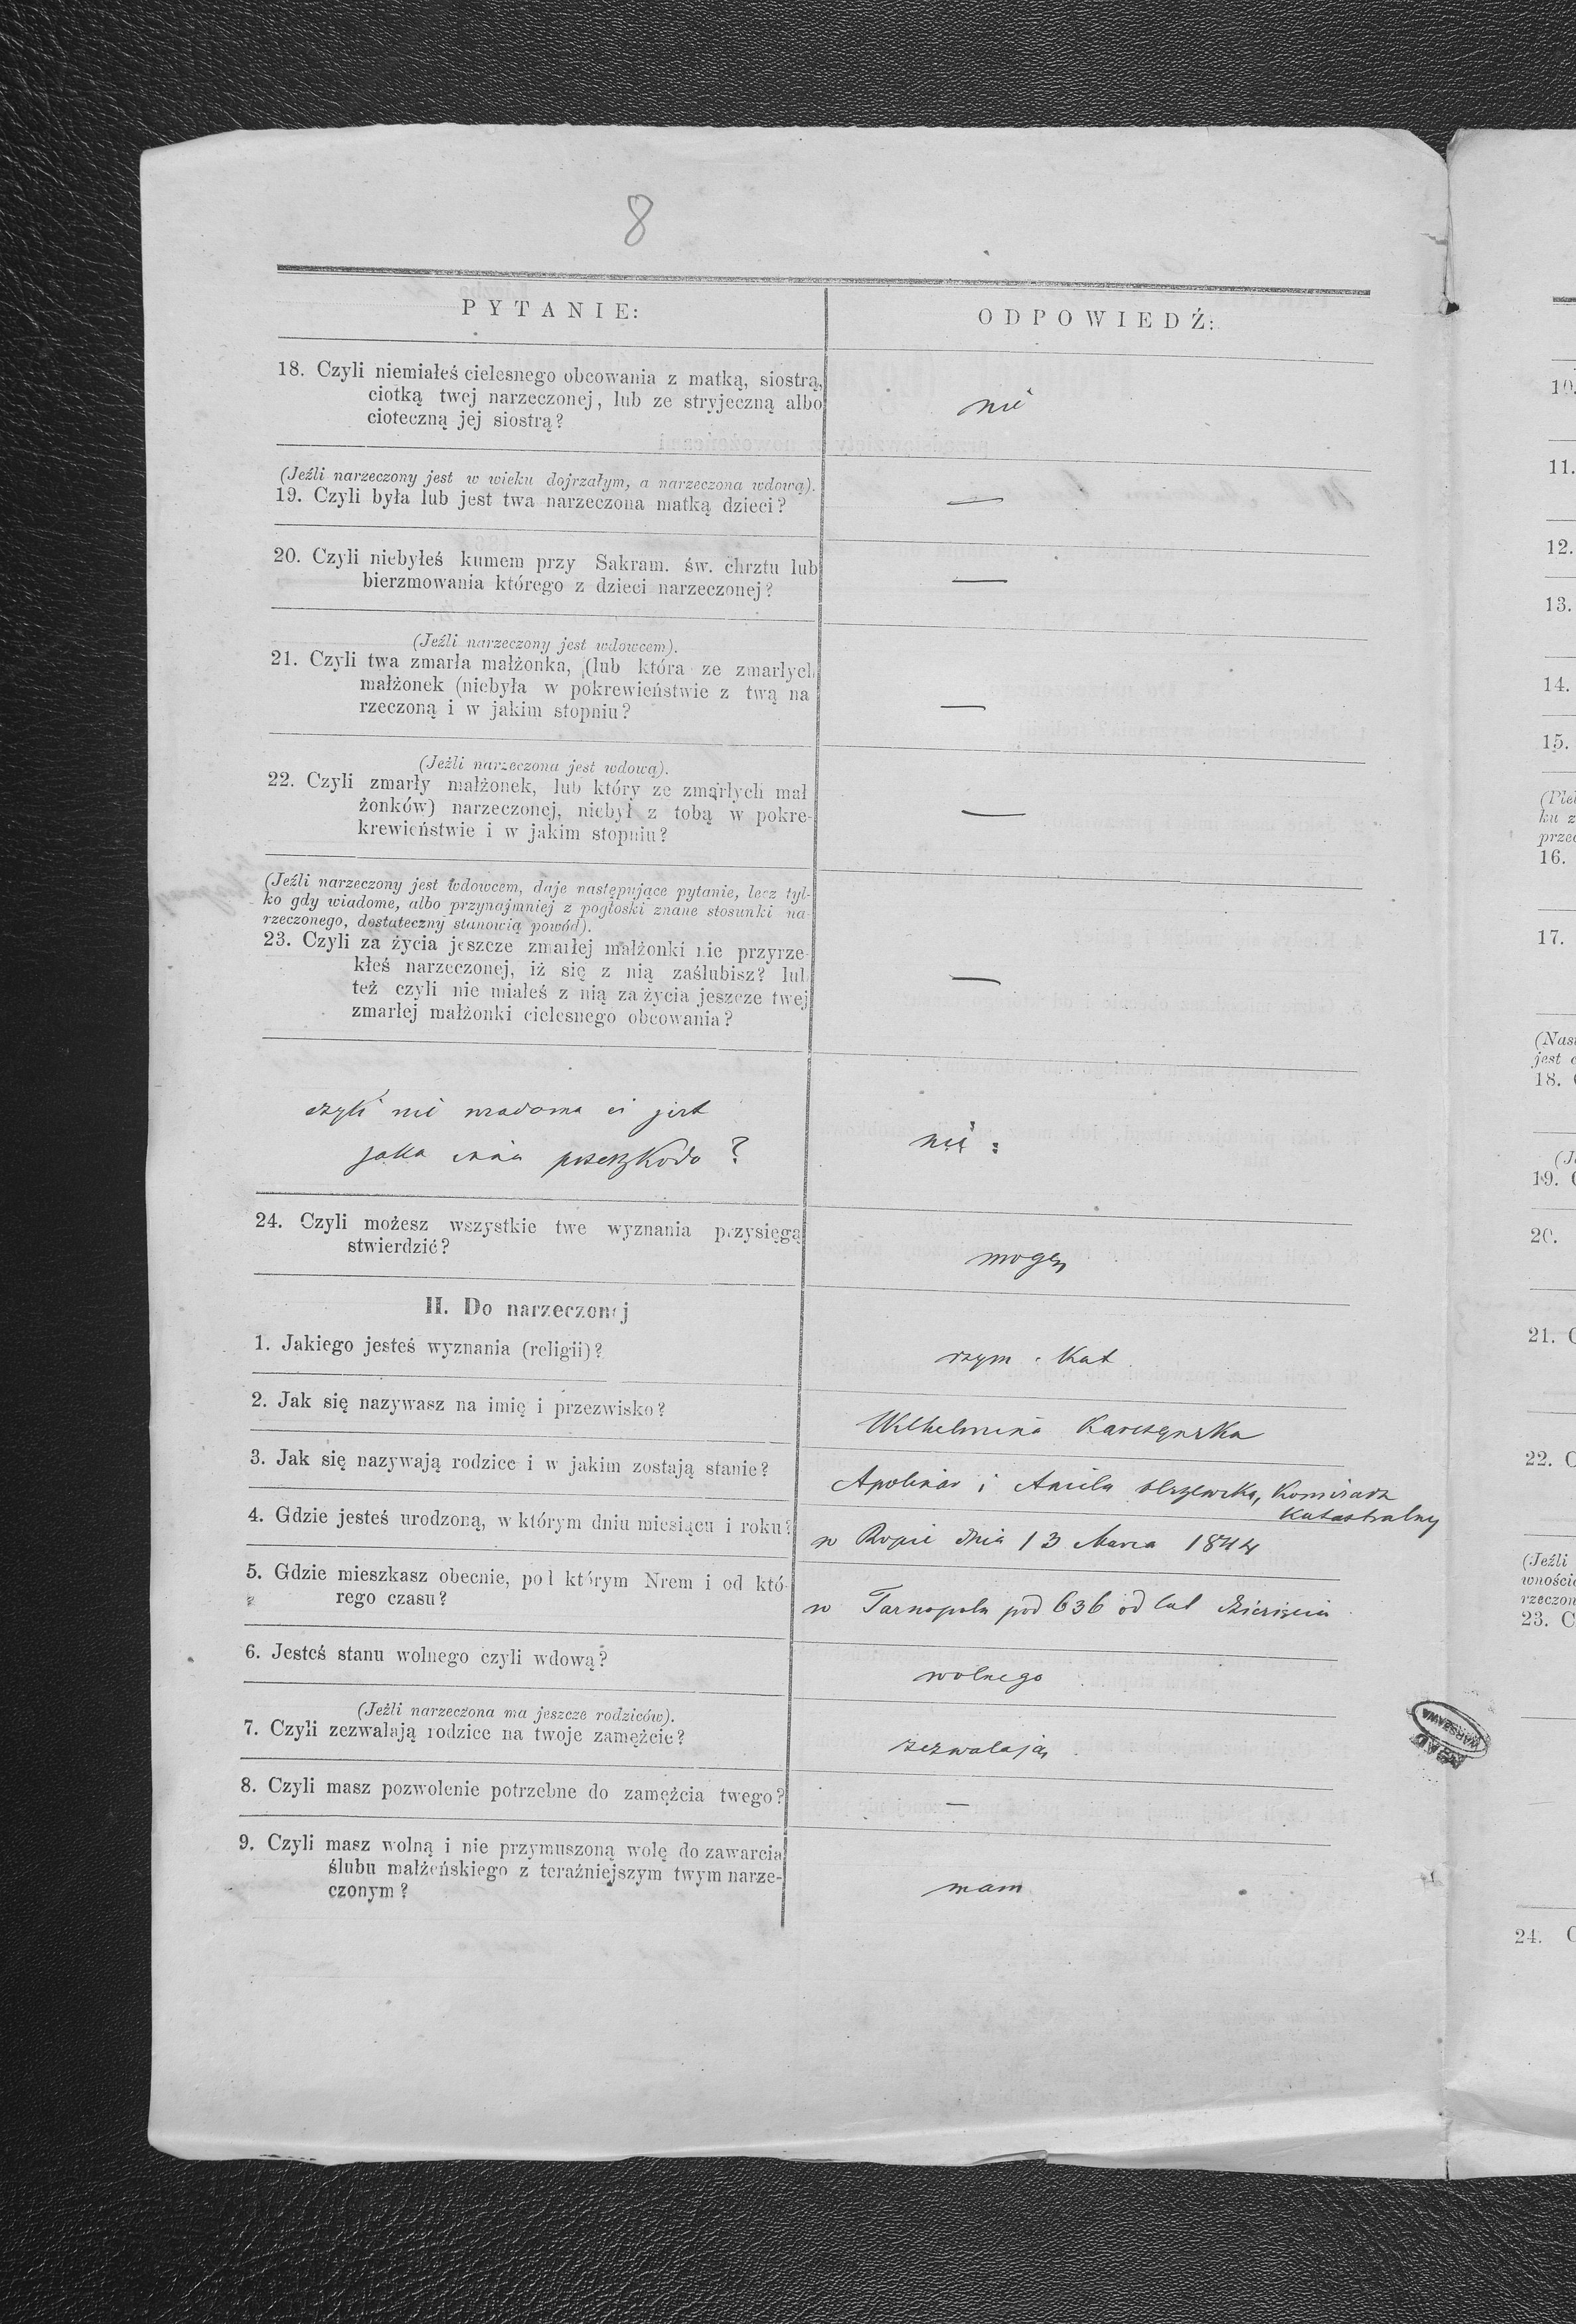 8
PYTANIE:
ODPOWIEDŹ:
18. Czyli niemiałeś cielesnego obcowania z matką, siostrą,
ciotką twej narzeczonej, lub ze stryjeczną albo
cioteczną jej siostrą?
nie
(Jeźli narzeczony jest w wieku dojrzałym, a narzeczona wdową).
19. Czyli była lub jest twa narzeczona matką dzieci?
—
20. Czyli niebyłeś kumem przy Sakram. św. chrztu lub
bierzmowania którego z dzieci narzeczonej?
—
(Jeźli narzeczony jest wdowcem).
21. Czyli twa zmarła małżonka, (lub która ze zmarłych
małżonek (niebyła w pokrewieństwie z twą na
rzeczoną i w jakim stopniu?
—
(Jeźli narzeczona jest wdową).
22. Czyli zmarły małżonek, lub który ze zmarłych mał
żonków) narzeczonej, niebył z tobą w pokre-
krewieństwie i w jakim stopniu?
—
(Jeźli narzeczony jest wdowcem, daje następujące pytanie, lecz tyl-
ko gdy wiadome, albo przynajmniej z pogłoski znane stosunki na-
rzeczonego, dostateczny stanowią powód).
23. Czyli za życia jeszcze zmarłej małżonki nie przyrze-
kłeś narzeczonej, iż się z nią zaślubisz? lub
też czyli nie miałeś z nią za życia jeszcze twej
zmarłej małżonki cielesnego obcowania?
—
czyli nie wiadoma ci jest
jaka inna przeszkoda?
nie
24. Czyli możesz wszystkie twe wyznania przysięgą
stwierdzić?
mogę
II. Do narzeczonej
1. Jakiego jesteś wyznania (religii)?
rzym. Kat
2. Jak się nazywasz na imię i przezwisko?
Wilhelmina Karczyńska
3. Jak się nazywają rodzice i w jakim zostają stanie?
Apolinar i Aniela Komisarz
Katastralny
4. Gdzie jesteś urodzoną, w którym dniu miesiącu i roku?
w Ropie dnia 13 Marca 1844
5. Gdzie mieszkasz obecnie, pod którym Nrem i od któ-
rego czasu?
w Tarnopolu pod 636 od lat dziesięciu
6. Jesteś stanu wolnego czyli wdową?
wolnego
(Jeźli narzeczona ma jeszcze rodziców).
7. Czyli zezwalają rodzice na twoje zamężcie?
zezwalają
8. Czyli masz pozwolenie potrzebne do zamężcia twego?
—
9. Czyli masz wolną i nie przymuszoną wolę do zawarcia
ślubu małżeńskiego z teraźniejszym twym narze-
czonym?
mam
AGAD
WARSZAWA
10.
11.
12.
13.
14.
15.
ku z
16.
17.
jest
18.
19.
20.
21.
22.
(Jeźli
23.
24.